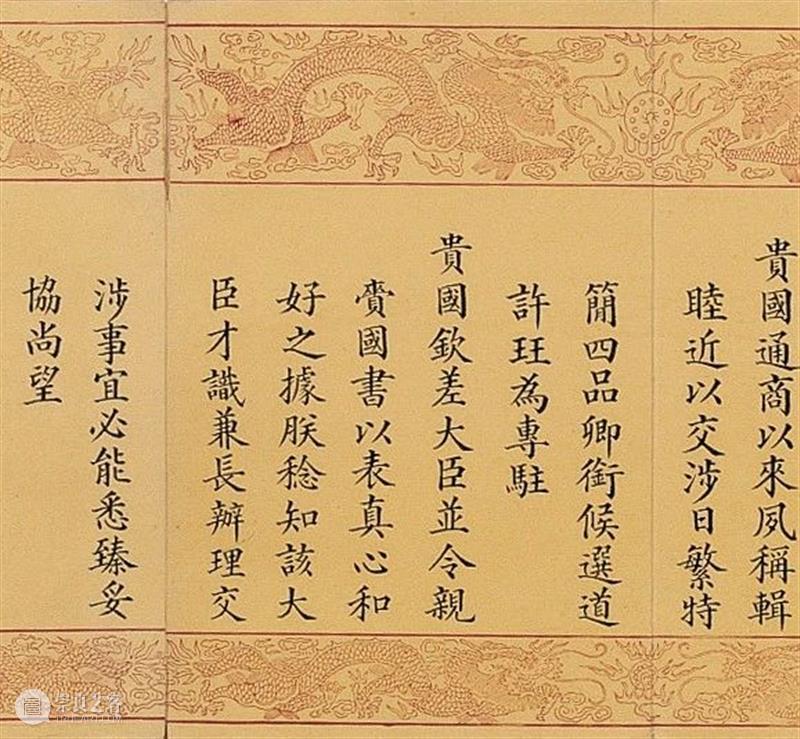 貴國通商以來夙稱輯
睦近以交涉日繁特
簡四品卿銜候選道
許珏為專駐
貴國欽差大臣並令親
賫國書以表真心和
好之據朕稔知該大
臣才識兼長辦理交
涉事宜必能悉臻妥
協尚望